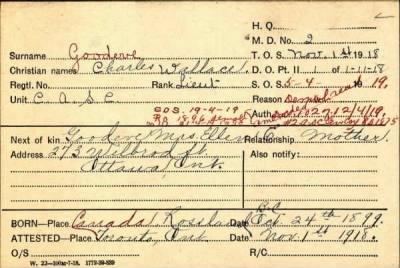 H. Q.
M. D. No. 2
Surname Goodeve T. O. S. Nov. 1st 1918
Christian names Charles Wallace D. O. Pt. II 1 of 1-11-18
Regtl. No. Rank Lieut S. O. S. 5-4- 19
Unit C. A. S. C. Reason
S.O.S. 19-4-19 Auth
Next of kin Goodeve Mrs Ellen Relationship Mother
Address 273 Wilbrod St. Also notify
Ottawa, Ont.
B.C.
BORN—Place Canada, Rossland Date Oct. 24th 1899.
ATTESTED—Place Toronto, Ont Date Nov. 1st 1918.
O/S R/C
W. 22-100M-7-18. 1772-39-839